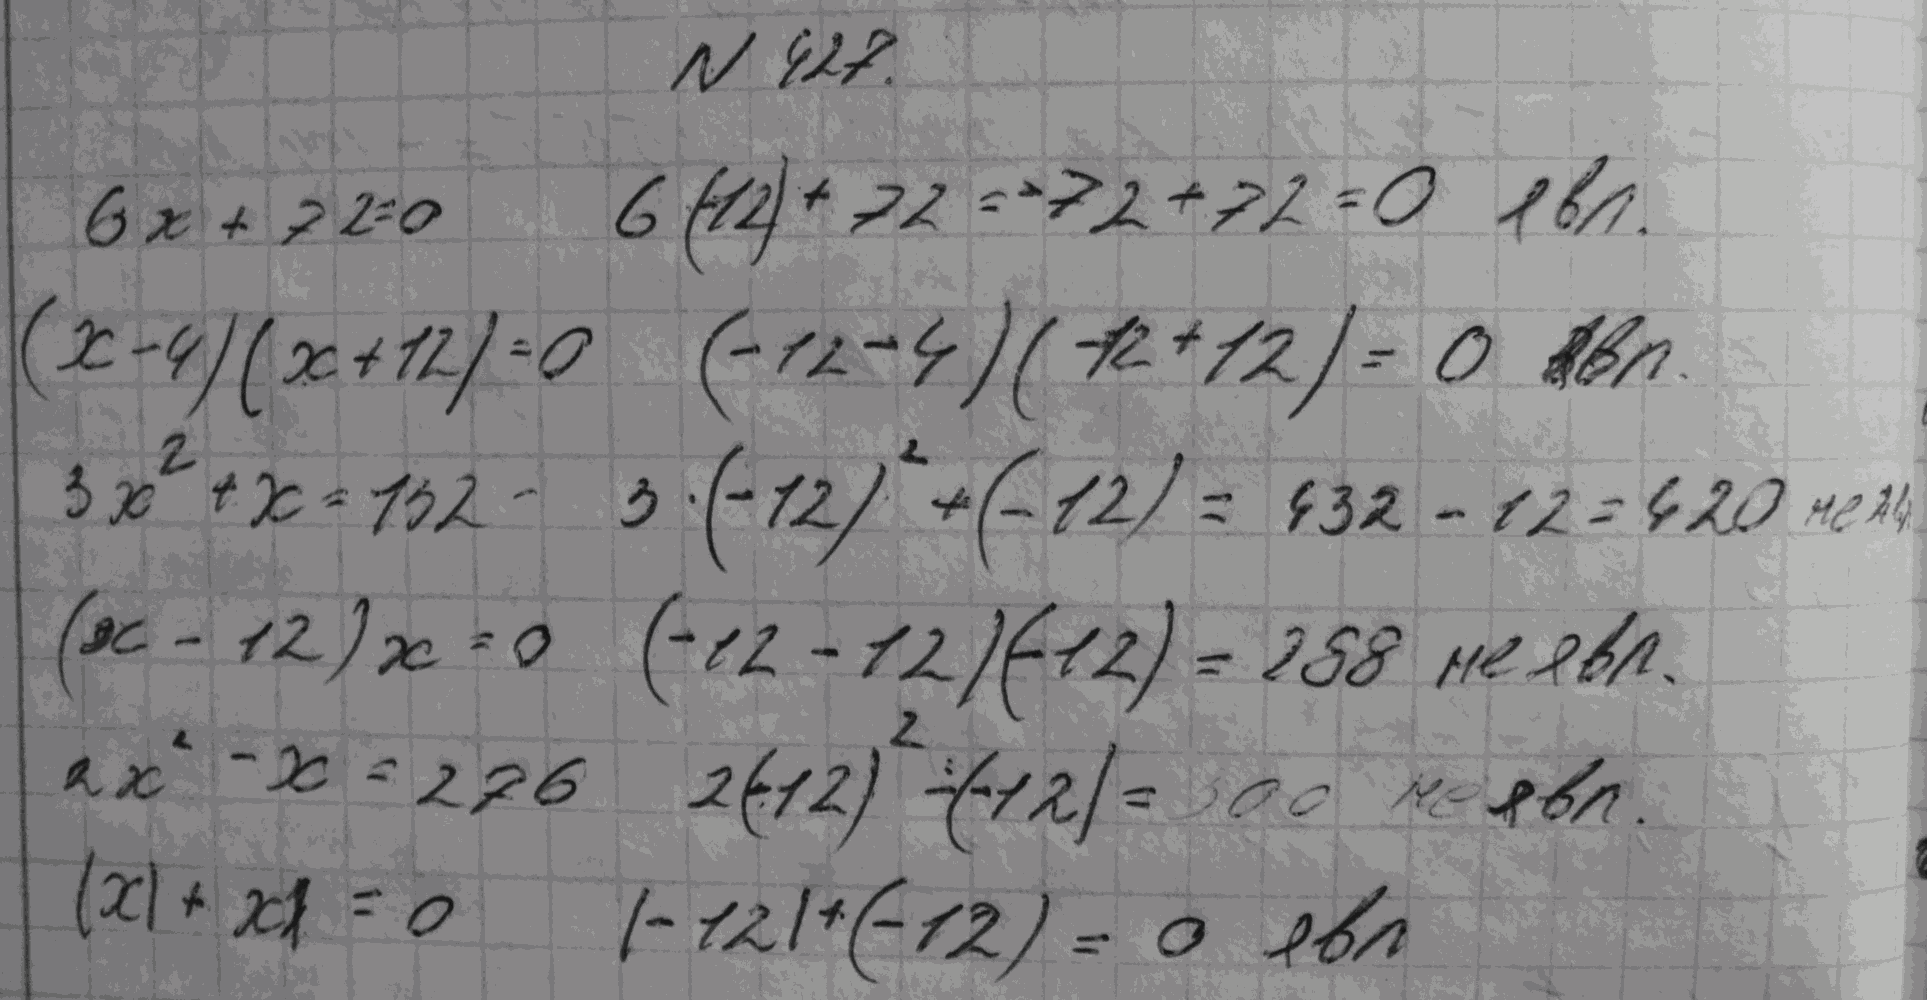 N 427.
6x + 72=0 6(-12)+72=-72+72=0 явл.
(x-4)(x+12)=0 (-12-4)(-12+12)=0 явл.
3x²+x=132 - 3·(-12)²+(-12)=432-12=420 не явл
(x-12)x=0 (-12-12)(-12)=288 не явл.
2x²-x=276 2(-12)²-(-12)=300 не явл.
|x|+x=0 |-12|+(-12)=0 явл